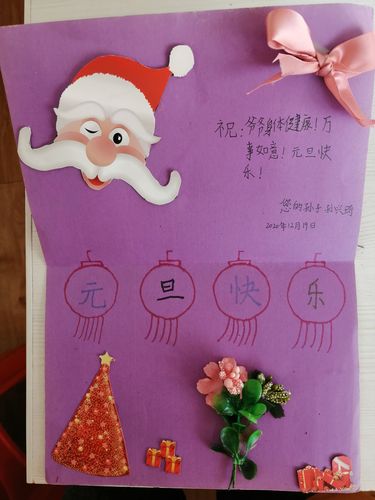 祝:爷爷身体健康!万
事如意!元旦快
乐!
您的孙子
2020年12月19日
元 旦 快 乐